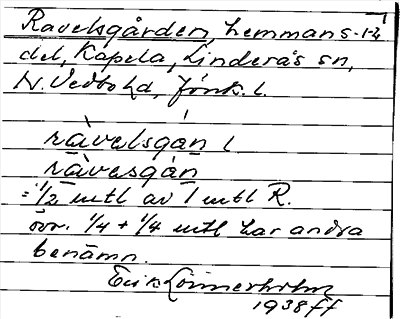 Ravelsgården, hemmans-
del, Kapela, Linderås sn,
N. Vedbo hd, Jönk. l.
ràvelsgán l
ràvasgán
= 1/2 mtl av 1 mtl R.
övr. 1/4 + 1/4 mtl har andra
benämn.
Erik Lönnerholm
1938 ff